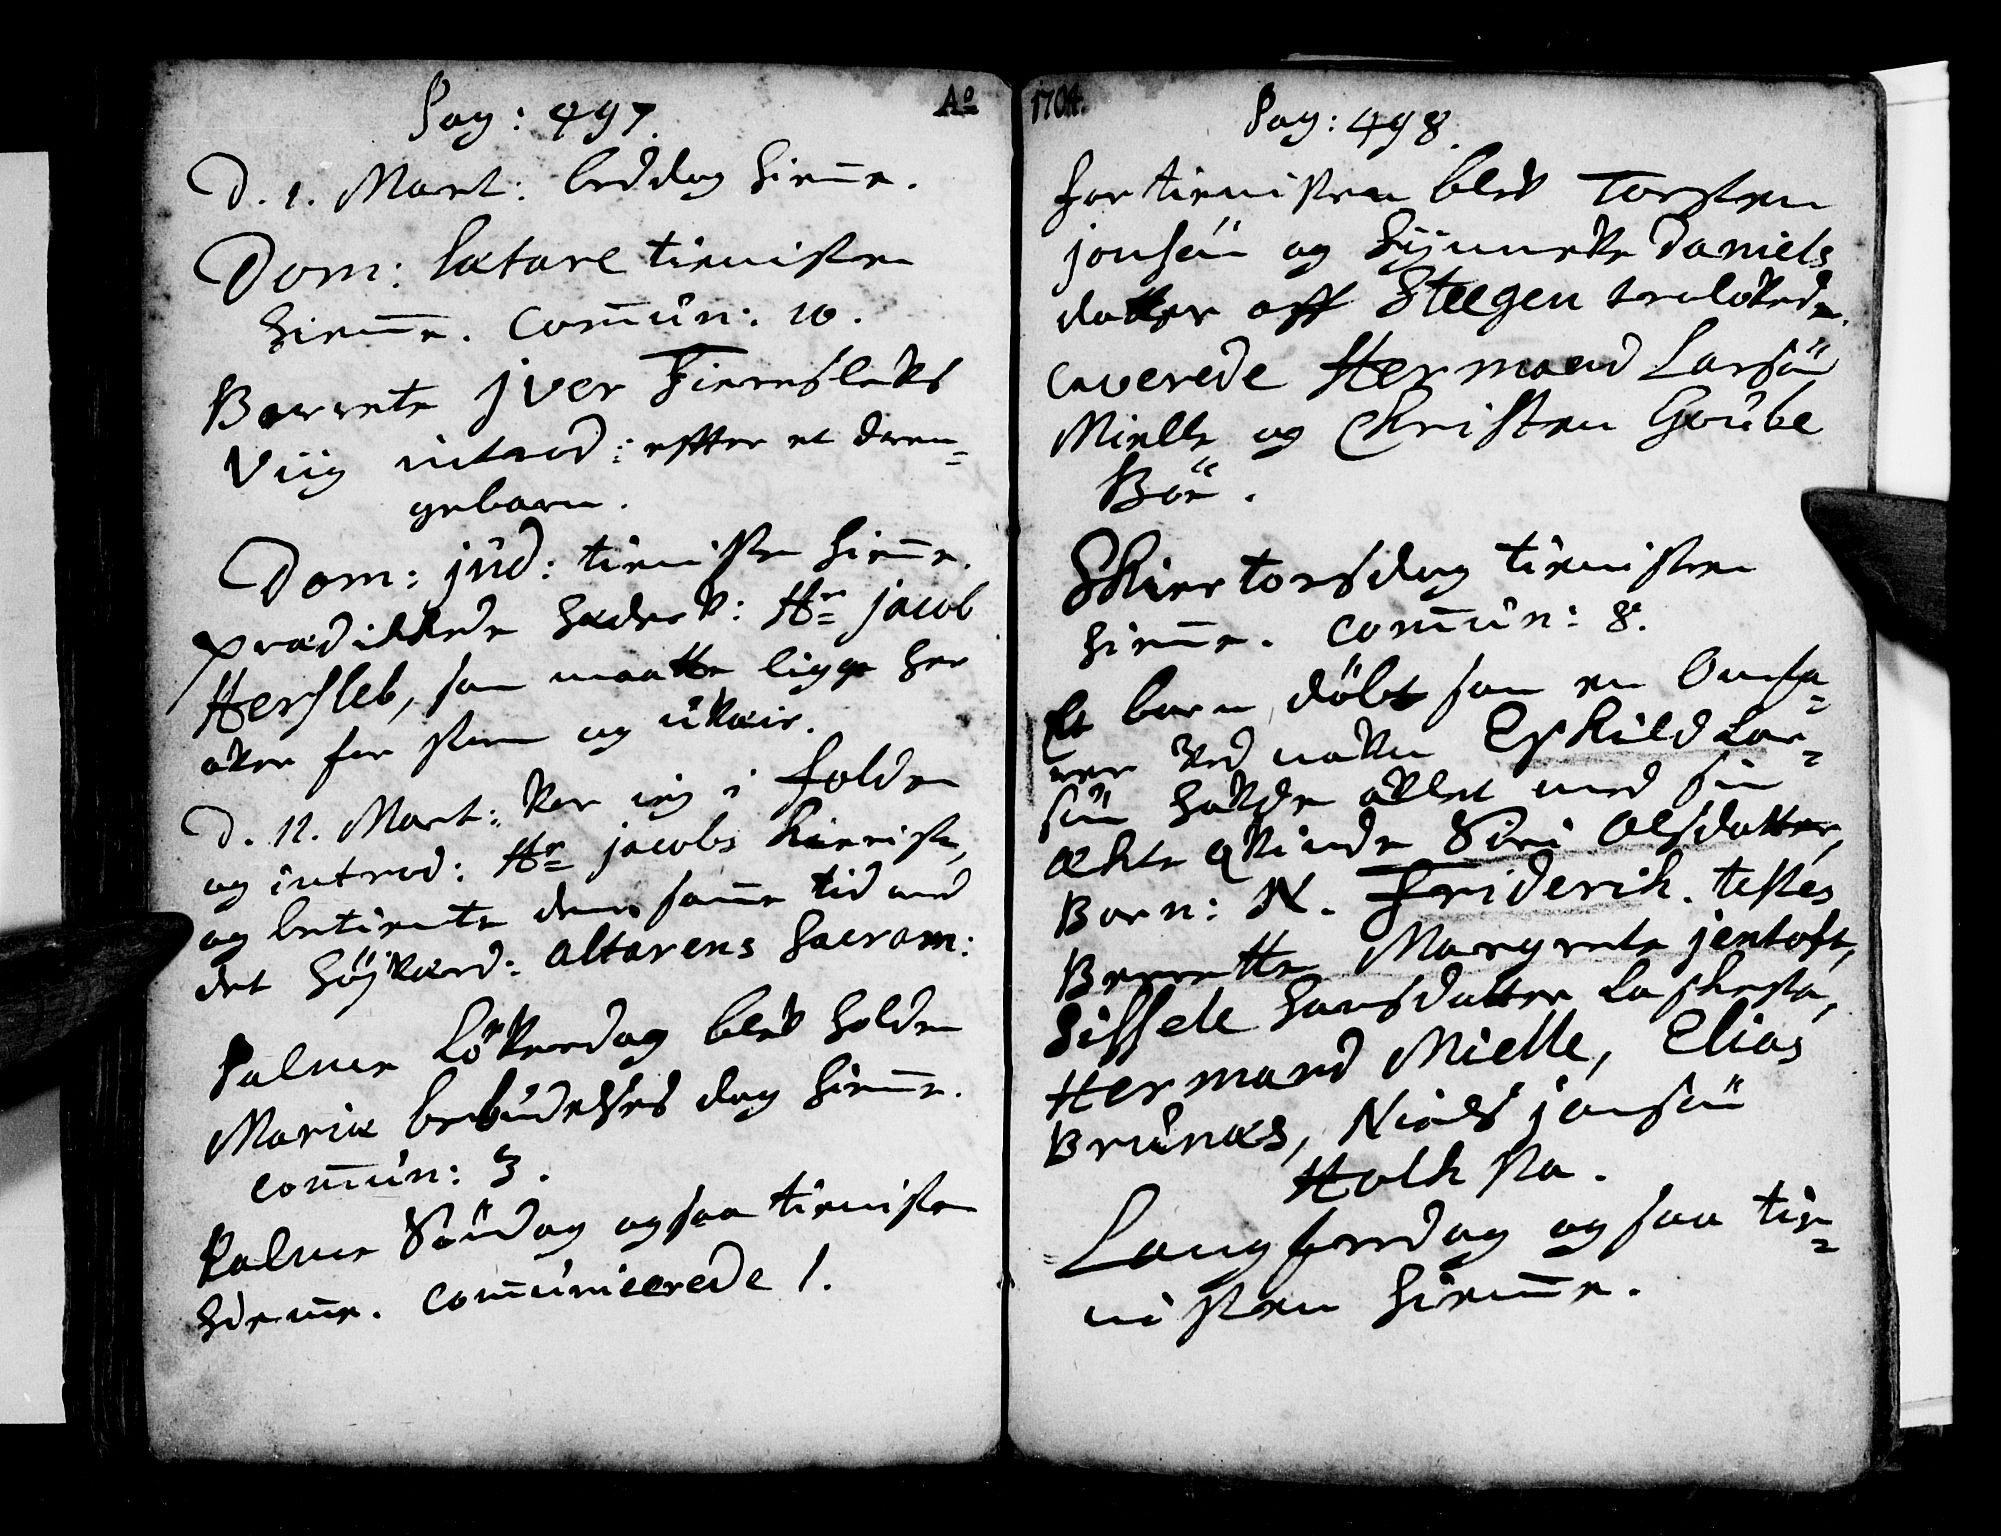 Pag: 497.
Aº
D. 1. Mart: beddag hieme.
Dom: Lætare tienisten
hieme. Comun: 10.
Berrete Jver Fieresleks
Viig introd: effter et dren=
gebarn.
Dom: jud: tieniste hieme.
prædikkede Hr jacob
Hersleb, som maatte ligge her
oker for storm og ukair.
D. 12. Mart: var ieg i Folden
og introd: Hr jacobs kieriste,
og betiente dem same tid med
det höjkærd: Altarens Sacram:
Palme Lökerdag blek holden
Mariæ bebudelses dag hieme.
Comun: 3.
Palme Söndag ogsaa tienisten
hieme. Comunicerede 1.
1704.
Pag: 498.
For tienisten blek Torsten
jonsön og Synneke Daniels
datter aff Steegen trolokede.
Caverede Hermand Larsön
Mielle og Christen Grube
Böe.
Skiertorsdag tienisten
hieme. Comun: 8.
Et barn döbt som en Omfa=
rer ved nakn Eskild Lar=
sön hakde aklet med sin
ækte qkinde Siri Olsdatter,
Barn: N. Friderik. testes
Berrette Margrete jentoft,
Sissele Hansdatter Laskesta,
Hermand Mielle, Elias
Brunæs, Niels jonsön
Holksta.
Langfredag ogsaa tie=
nisten hieme.